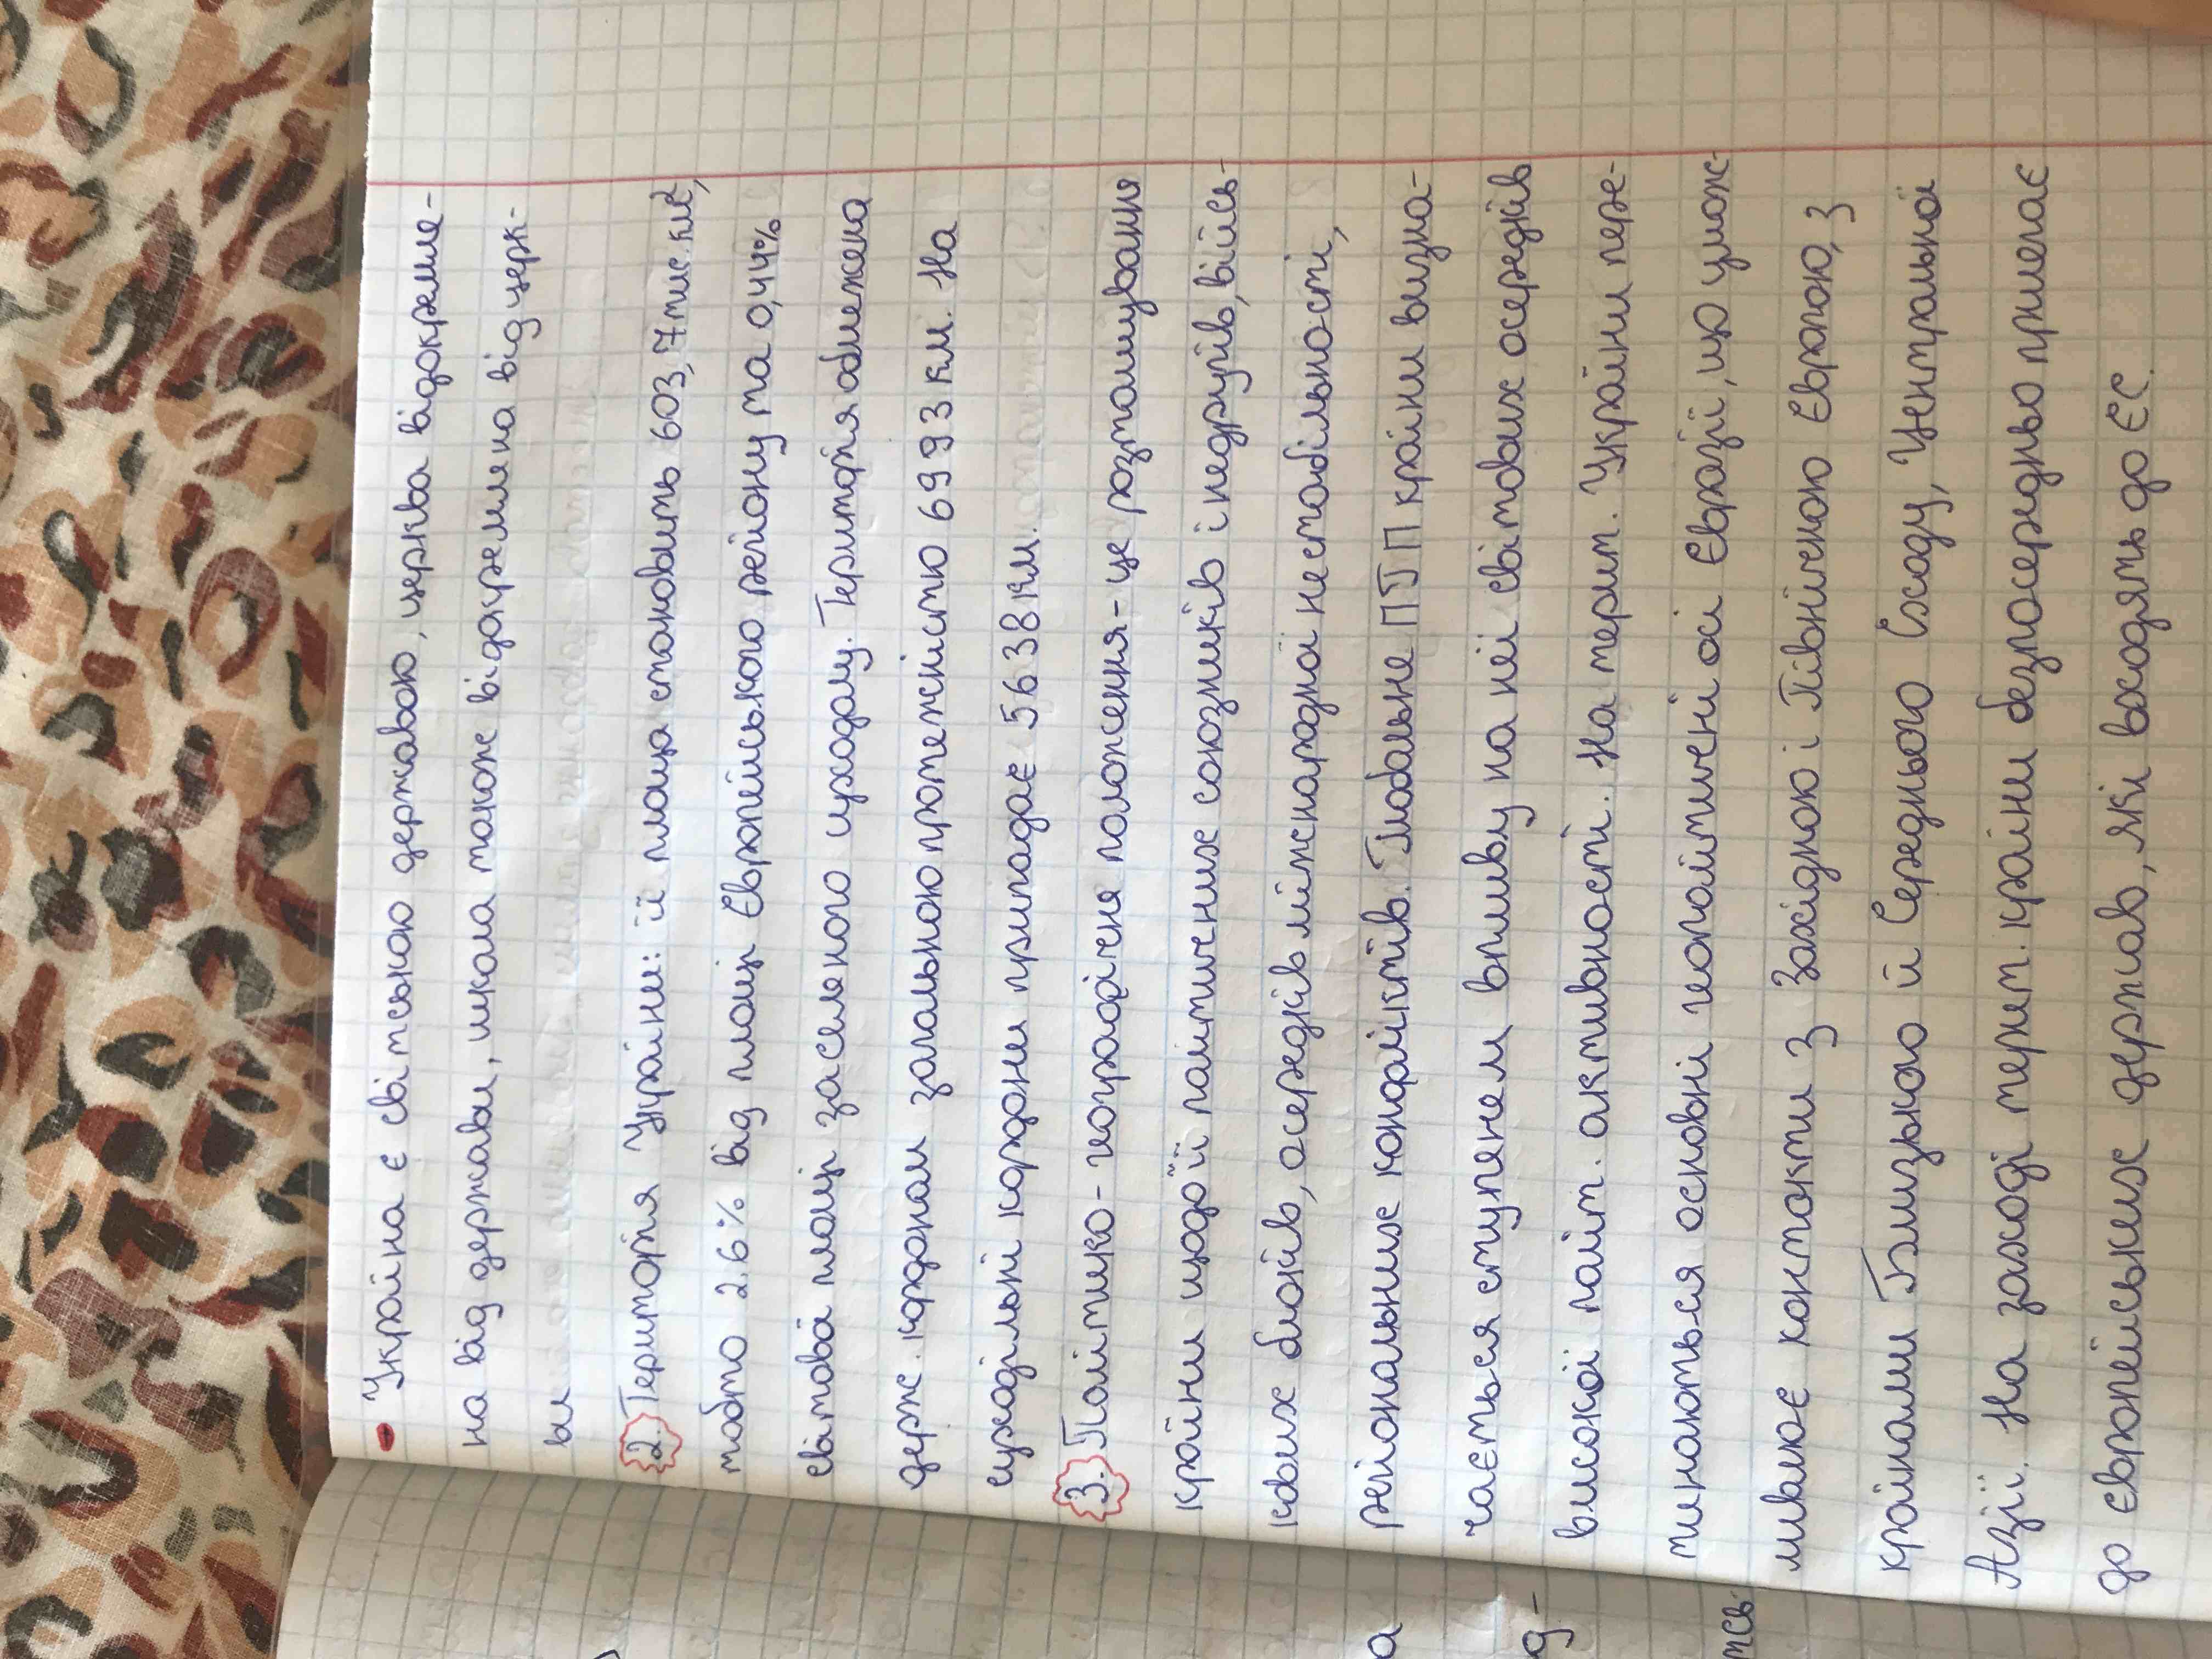 Україна є світською державою, церква відокремле-
на від держави, школа також відокремлена від церк-
ви
2. Територія України: її площа становить 603,7 тис. км²,
тобто 2.6% від площі Європейського регіону та 0,44%
світової площі заселеного суходолу. Територія обмежена
держ. кордоном загальною протяжністю 6993 км. На
суходільні кордони припадає 5638 км.
3. Політико-географічне положення - це розташування
країни щодо її політичних союзників і недругів, війсь-
кових блоків, осередків міжнародної нестабільності,
регіональних конфліктів. Глобальне ПГП країни визна-
чається ступенем впливу на неї світових осередків
високої політ. активності. На терит. України пере-
тинаються основні геополітичні осі Євразії, що умож-
ливлює контакти з Західною і Північною Європою, з
країнами Близького й Середнього Сходу, Центральної
Азії. На заході терит. країни безпосередньо прилягає
до європейських держав, які входять до ЄС.
а
д-
тсь-